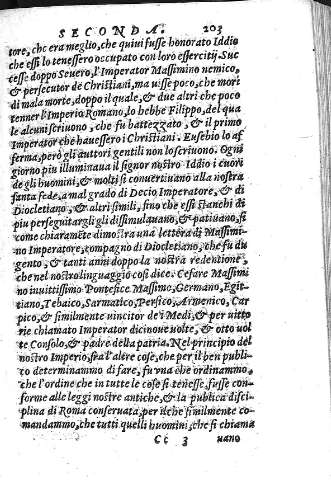 SECONDA. 203
tore, che era meglio, che quiui fusse honorato Iddio
che essi lo tenessero occupato con loro essercitij. Suc
cesse doppo Seuero, l'Imperator Massimino nemico,
& persecutor de Christiani, ma uisse poco, che morì
di mala morte, doppo il quale, & due altri che poco
tenner l'Imperio Romano, lo hebbe Filippo, del qua
le alcuni scriuono, che fu battezzato, & il primo
Imperator che hauessero i Christiani. Eusebio lo af
ferma, però gli auttori gentili non lo scriuono. Ogni
giorno piu illuminaua il signor nostro Iddio i cuori
de gli huomini, & molti si conuertiuano alla nostra
santa fede, a mal grado di Decio Imperatore, & di
Diocletiano, & altri simili, fino che essi stanchi di
piu perseguitargli gli dissimulauano, & patiuano, sì
come chiaramẽte dimostra una lettera di Massimi-
no Imperatore, compagno di Diocletiano, che fu du
gento, & tanti anni doppo la nostra redentione,
che nel nostro linguaggio così dice: Cesare Massimi
no inuittissimo Pontefice Massimo, Germano, Egit-
tiano, Tebaico, Sarmatico, Persico, Armenico, Car
pico, & similmente uincitor de i Medi, & per uitto
rie chiamato Imperator dicinoue uolte, & otto uol
te Consolo, & padre della patria. Nel principio del
nostro Imperio, fra l'altre cose, che per il ben publi-
co determinammo di fare, fu una che ordinammo,
che l'ordine che in tutte le cose si tenesse, fusse con-
forme alle leggi nostre antiche, & la publica disci-
plina di Roma conseruata, per ilche similmente co-
mandammo, che tutti quelli huomini, che si chiama
Cc 3 uano